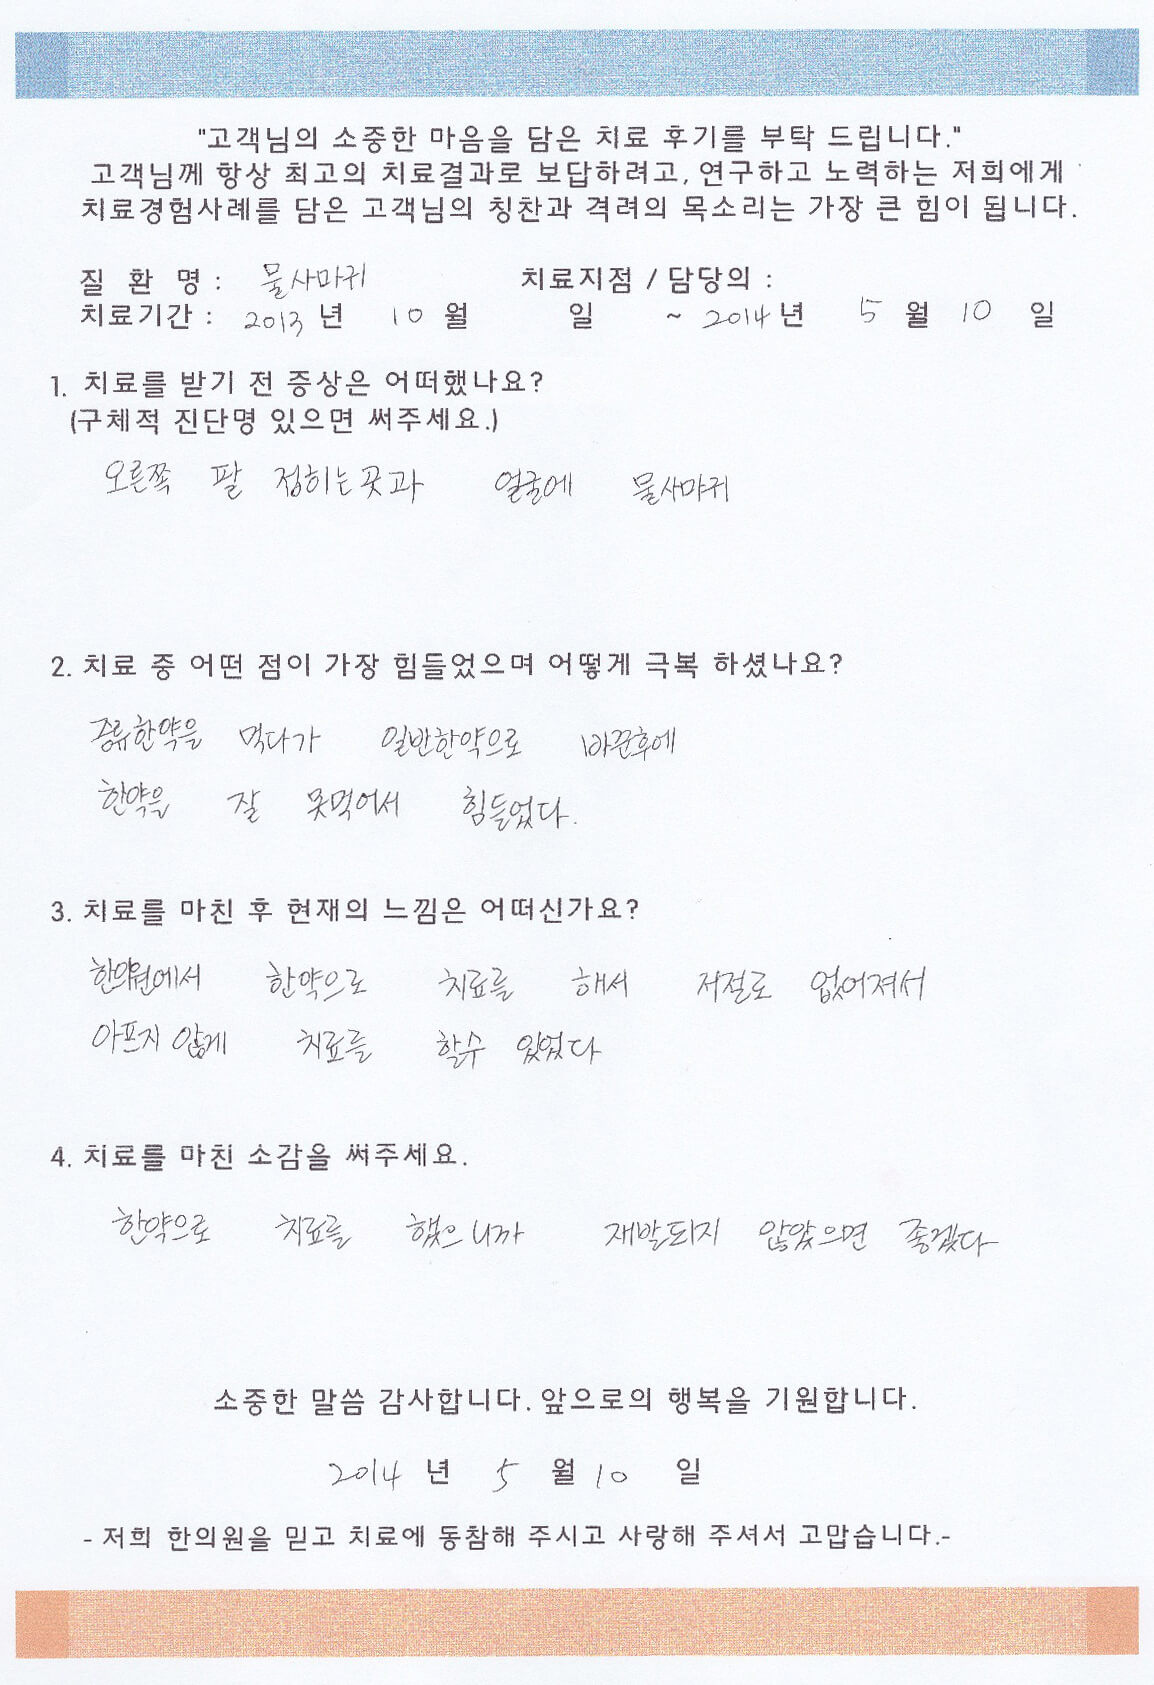 "고객님의 소중한 마음을 담은 치료 후기를 부탁 드립니다."
고객님께 항상 최고의 치료결과로 보답하려고, 연구하고 노력하는 저희에게
치료경험사례를 담은 고객님의 칭찬과 격려의 목소리는 가장 큰 힘이 됩니다.
질 환 명 : 물사마귀 치료지점 / 담당의 :
치료기간 : 2013 년 10 월 일 ~ 2014 년 5 월 10 일
1. 치료를 받기 전 증상은 어떠했나요?
(구체적 진단명 있으면 써주세요.)
오른쪽 팔 접히는곳과 얼굴에 물사마귀
2. 치료 중 어떤 점이 가장 힘들었으며 어떻게 극복 하셨나요?
증류한약을 먹다가 일반한약으로 바꾼후에
한약을 잘 못먹어서 힘들었다.
3. 치료를 마친 후 현재의 느낌은 어떠신가요?
한의원에서 한약으로 치료를 해서 저절로 없어져서
아프지 않게 치료를 할수 있었다
4. 치료를 마친 소감을 써주세요.
한약으로 치료를 했으니까 재발되지 않았으면 좋겠다
소중한 말씀 감사합니다. 앞으로의 행복을 기원합니다.
2014 년 5 월 10 일
- 저희 한의원을 믿고 치료에 동참해 주시고 사랑해 주셔서 고맙습니다.-